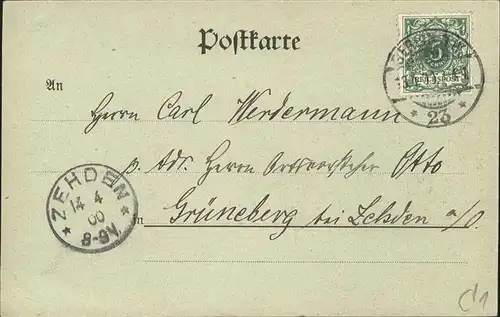 Postkarte
5
REICHSPOST
* 23 *
An
Herrn Carl Werdermann
p. Adr. Herrn Ortsvorsteher Otto
in Grüneberg bei Zehden a/O.
* ZEHDEN *
14 4
00
8-9V.